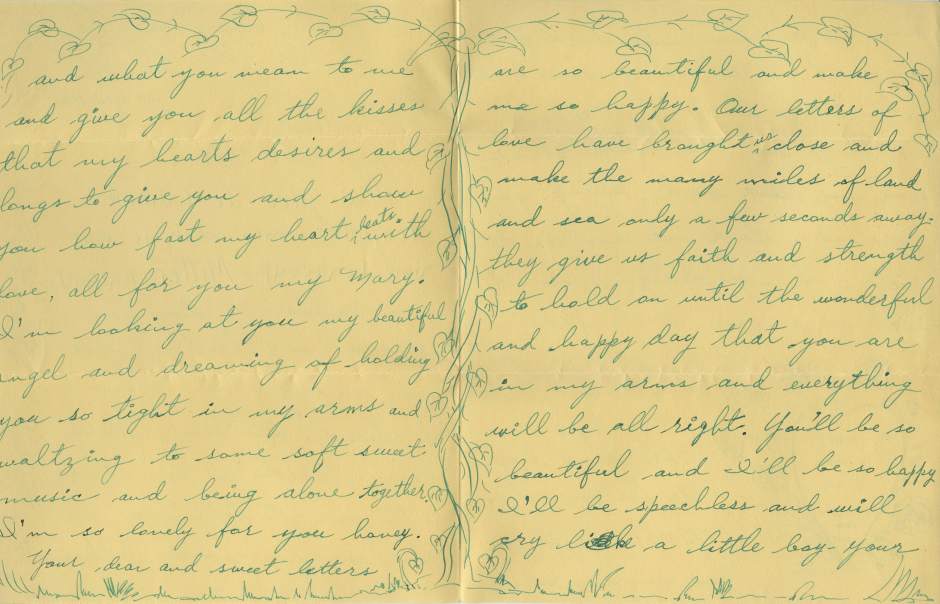 and what you mean to me
and give you all the kisses
that my hearts desires and
longs to give you and show
you how fast my heart beats with
love, all for you my Mary.
I'm looking at you my beautiful
angel and dreaming of holding
you so tight in my arms and
waltzing to some soft sweet
music and being alone together.
I'm so lonely for you honey.
Your dear and sweet letters
are so beautiful and make
me so happy. Our letters of
love have brought us close and
make the many miles of land
and sea only a few seconds away.
they give us faith and strength
to hold on until the wonderful
and happy day that you are
in my arms and everything
will be all right. You'll be so
beautiful and I'll be so happy
I'll be speechless and will
cry like a little boy - your